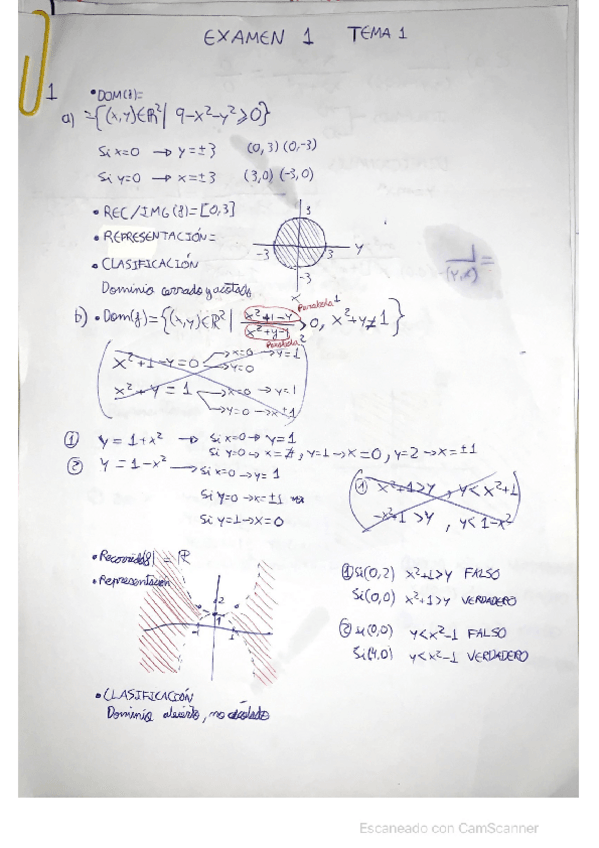 EXAMEN 1 TEMA 1
1
• DOM(f)=
a) ={(x,y)∈ℝ²| 9-x²-y²⩾0}
Si x=0 → y=±3 (0,3) (0,-3)
Si y=0 → x=±3 (3,0) (-3,0)
• REC/IMG(f)=[0,3]
• REPRESENTACIÓN=
3
-3 3 Y
-3
X
• CLASIFICACIÓN
Dominio cerrado y acotado
b) • Dom(f)={(x,y)∈ℝ² | (x²+1-y)/(x²+y-1) >0, x²+y≠1}
Parabola 1
Parabola 2
x²+1-y=0 → x=0 → y=1
→ y=0
x²+y=1 → x=0 → y=1
→ y=0 → x±1
① y=1+x² → Si x=0 → y=1
Si y=0 → x=∄, y=1→x=0, y=2→x=±1
② y=1-x² → Si x=0 → y=1
Si y=0 → x=±1
Si y=1→x=0
① x²+1>y , y<x²+1
-x²+1>y , y<1-x²
• Recorrido(f) = ℝ
• Representación
2
1
-1 1
① Si(0,2) x²+1>y FALSO
Si(0,0) x²+1>y VERDADERO
② si(0,0) y<x²-1 FALSO
Si(4,0) y<x²-1 VERDADERO
• CLASIFICACIÓN
Dominio abierto, no acotado
Escaneado con CamScanner